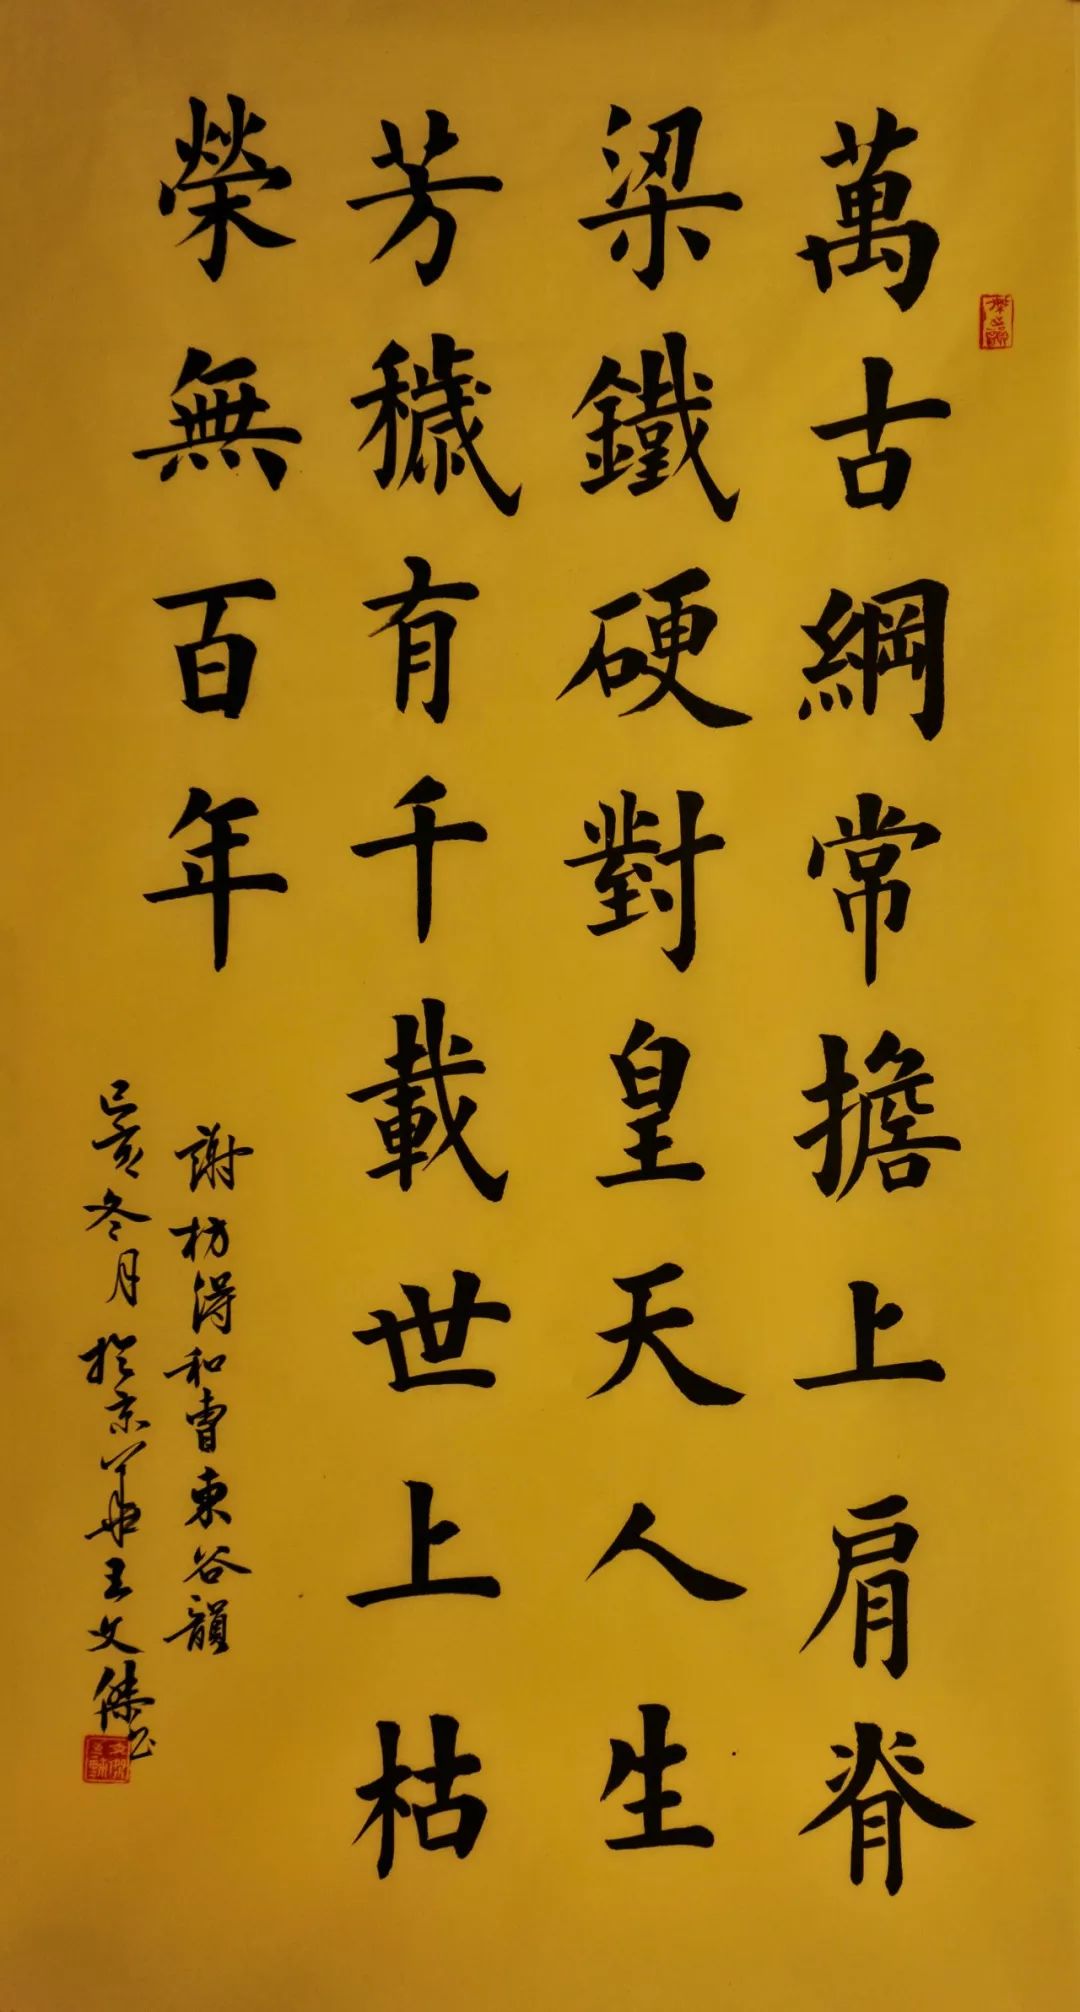 萬古綱常擔上肩脊
梁鐵硬對皇天人生
芳穢有千載世上枯
榮無百年
謝枋得和曹東谷韻
己亥冬月於京華王文傑書